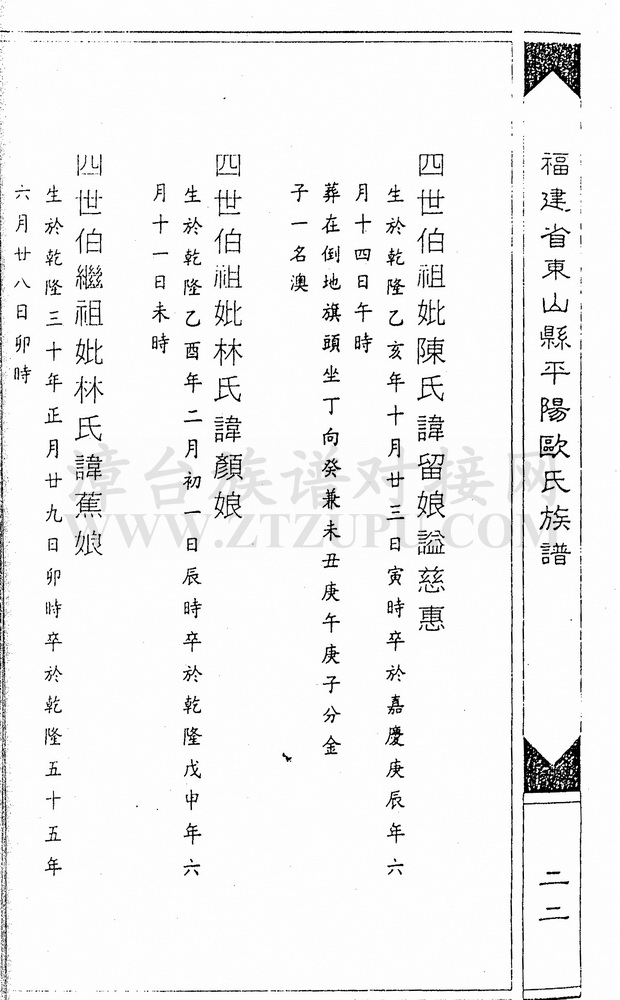 福建省東山縣平陽歐氏族譜
二二
四世伯祖妣陳氏諱留娘謚慈惠
生於乾隆乙亥年十月廿三日寅時卒於嘉慶庚辰年六
月十四日午時
葬在倒地旗頭坐丁向癸兼未丑庚午庚子分金
子一名澳
四世伯祖妣林氏諱顏娘
生於乾隆乙酉年二月初一日辰時卒於乾隆戊申年六
月十一日未時
四世伯繼祖妣林氏諱蕉娘
生於乾隆三十年正月廿九日卯時卒於乾隆五十五年
六月廿八日卯時
漳台族谱对接网
WWW.ZTZUPU.COM